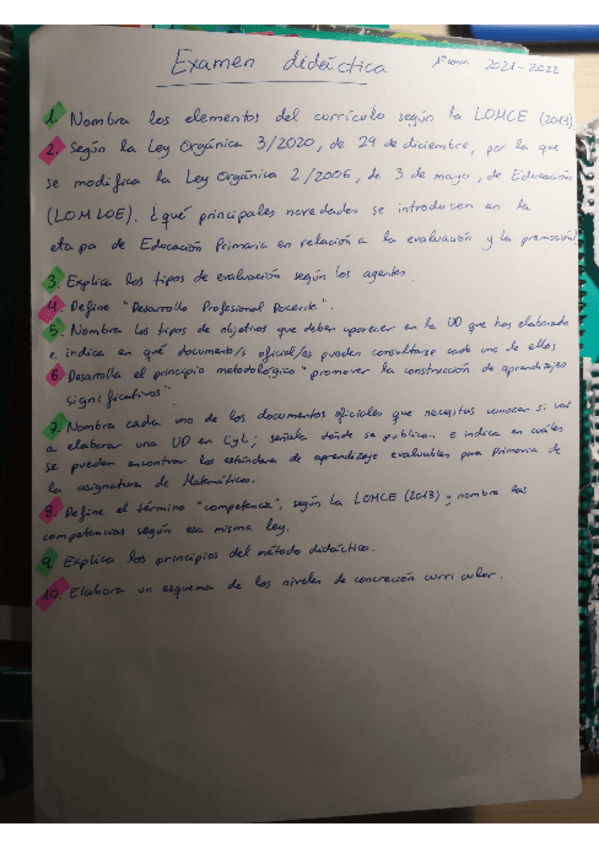 Examen didáctica 1ª conv. 2021-2022
1. Nombra los elementos del currículo según la LOMCE (2013).
2. Según la Ley Orgánica 3/2020, de 29 de diciembre, por la que
se modifica la Ley Orgánica 2/2006, de 3 de mayo, de Educación
(LOMLOE). ¿qué principales novedades se introducen en la
etapa de Educación Primaria en relación a la evaluación y la promoción?
3. Explica los tipos de evaluación según los agentes.
4. Define "Desarrollo Profesional Docente".
5. Nombra los tipos de objetivos que deben aparecer en la UD que has elaborado
e indica en qué documento/s oficial/es pueden consultarse cada uno de ellos
6. Desarrolla el principio metodológico "promover la construcción de aprendizajes
significativos".
7. Nombra cada uno de los documentos oficiales que necesitas conocer si vas
a elaborar una UD en CyL; señala dónde se publican e indica en cuáles
se pueden encontrar los estándares de aprendizaje evaluables para primaria de
la asignatura de Matemáticas.
8. Define el término "competencia", según la LOMCE (2013) y nombra las
competencias según esa misma ley.
9. Explica los principios del método didáctico.
10. Elabora un esquema de los niveles de concreción curricular.